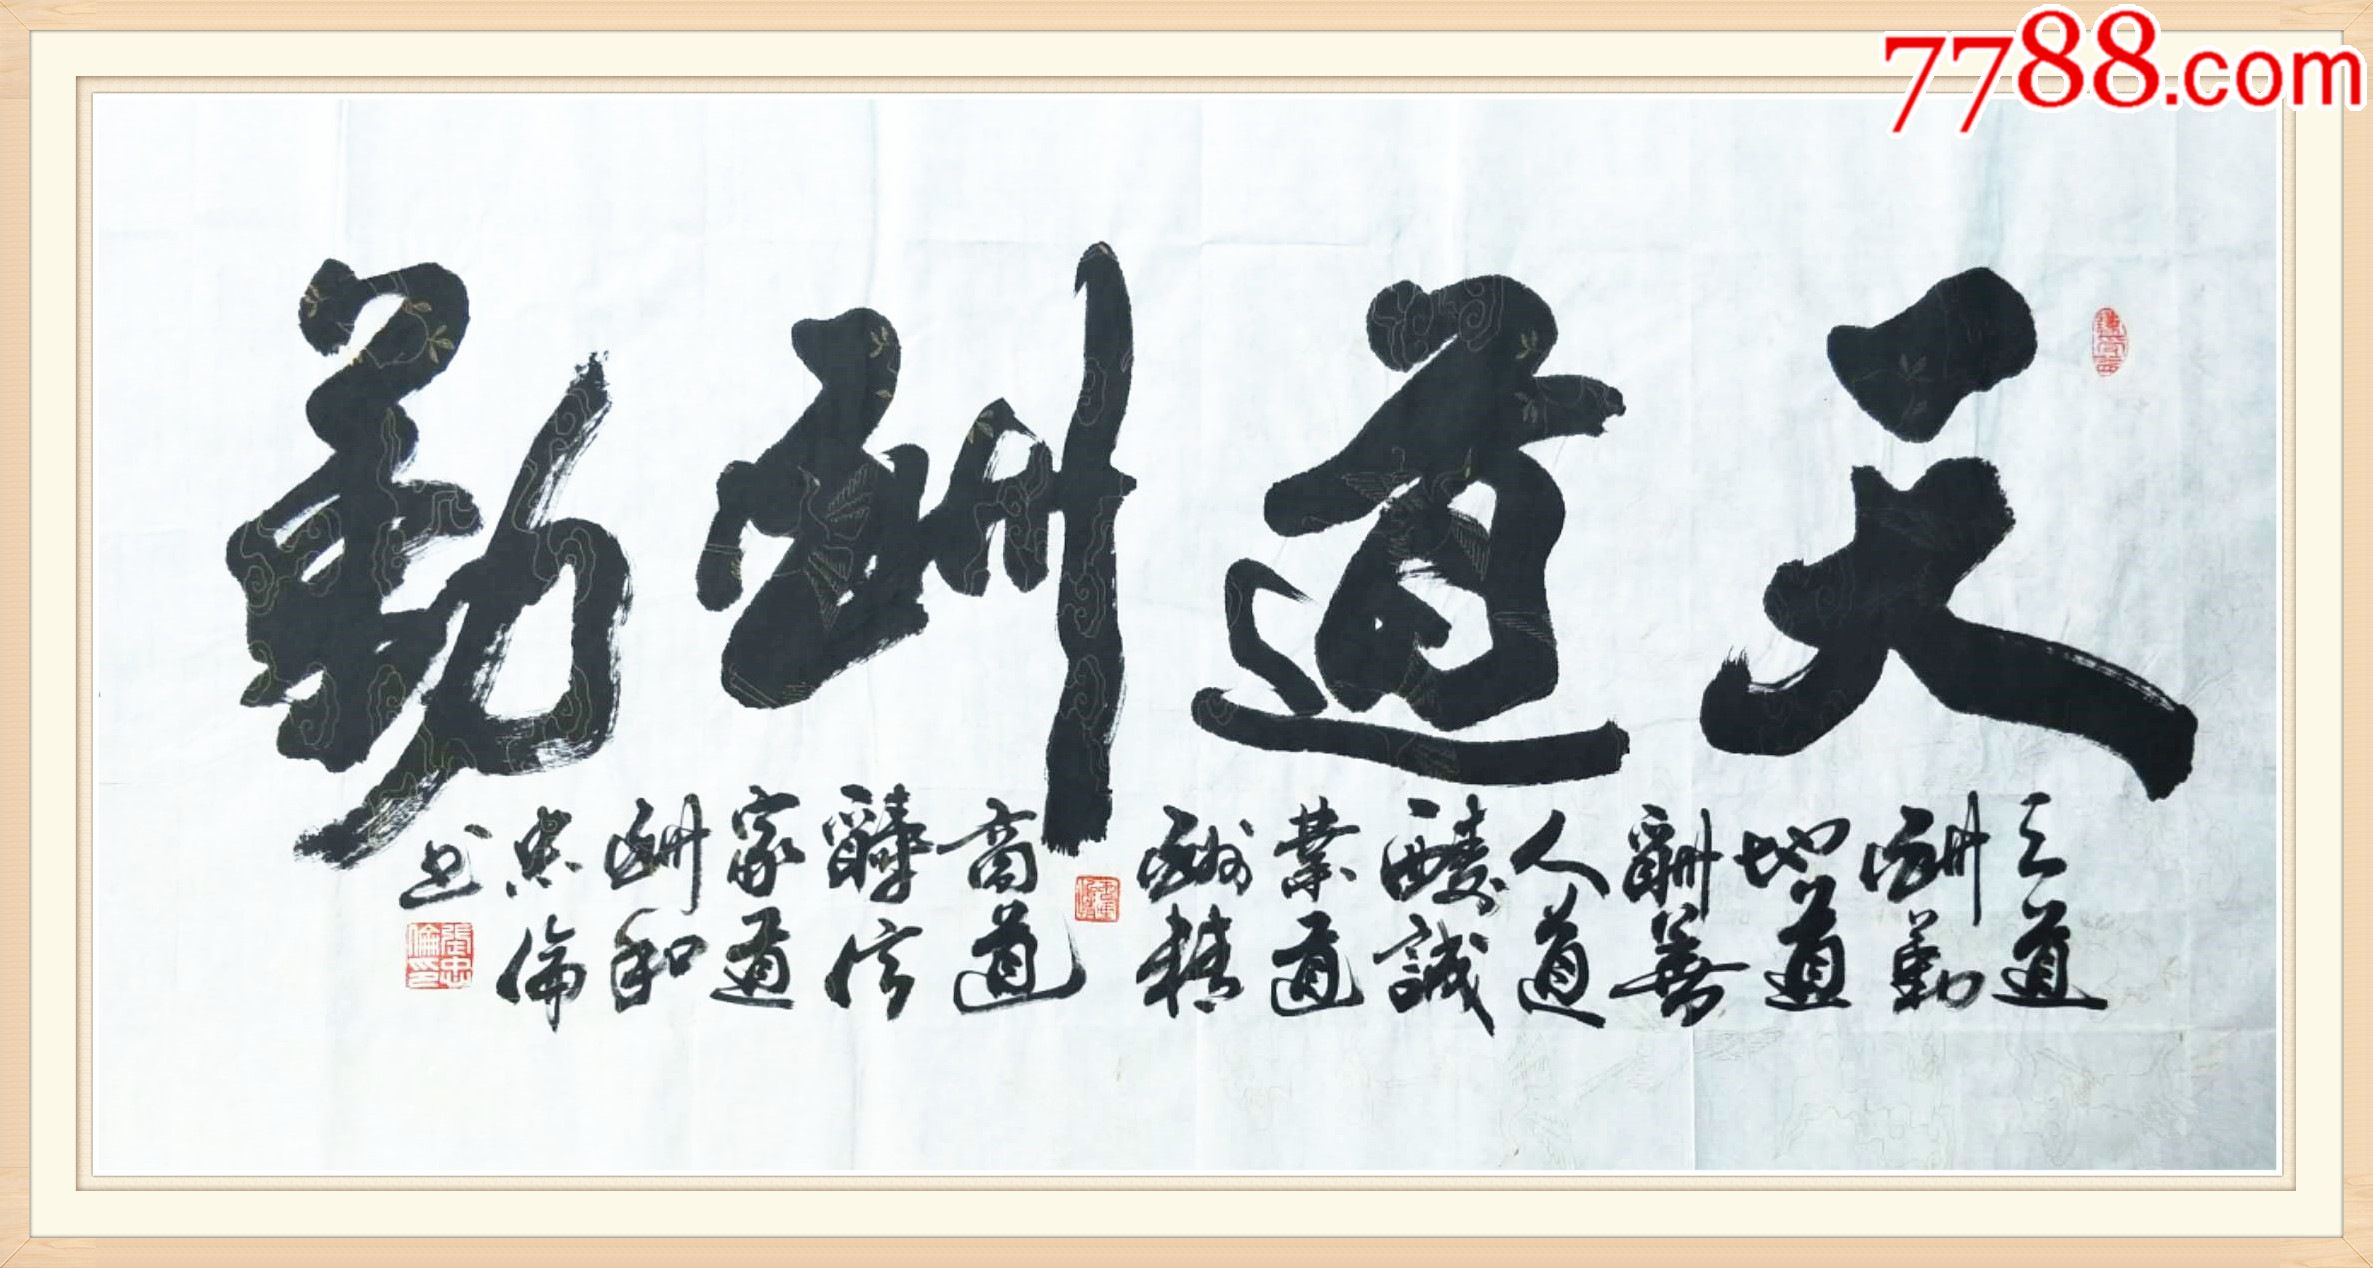 7788.com
天道酬勤
天道
酬勤
地道
酬善
人道
酬誠
業道
酬精
商道
酬信
家道
酬和
忠倫
书
張忠倫印